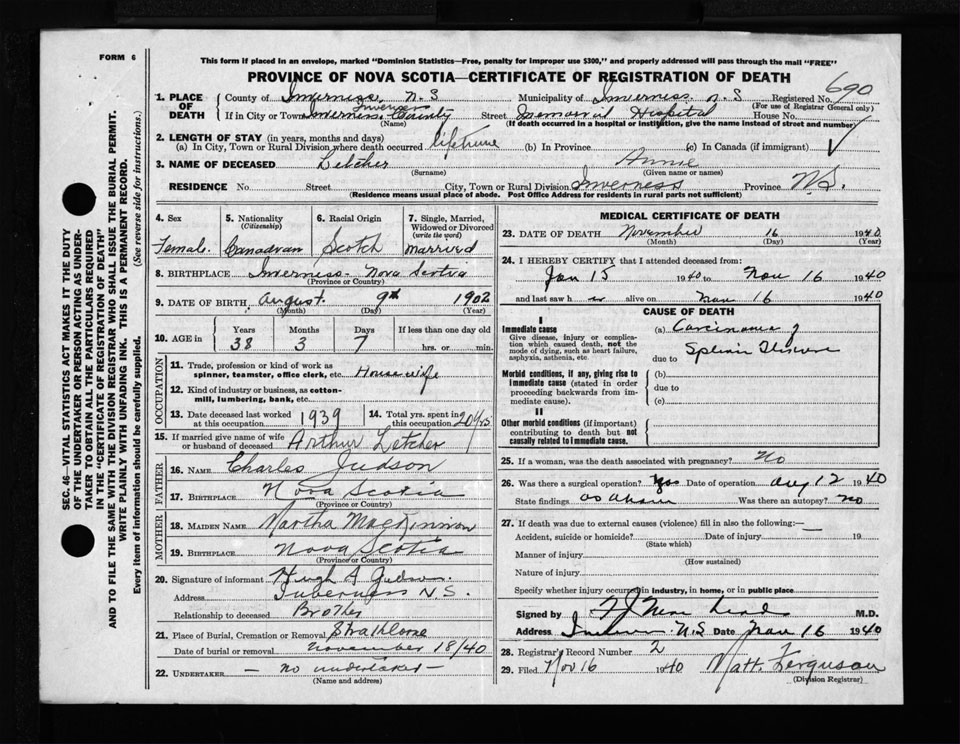 FORM 6
This form if placed in an envelope, marked "Dominion Statistics—Free, penalty for improper use $300," and properly addressed will pass through the mail "FREE"
PROVINCE OF NOVA SCOTIA—CERTIFICATE OF REGISTRATION OF DEATH
690
1. PLACE OF DEATH
County of Inverness, N.S Municipality of Inverness. N.S Registered No.
(For use of Registrar General only)
If in City or Town Inverness County Street Memorial Hospital House No.
(Name) (If death occurred in a hospital or institution, give the name instead of street and number)
2. LENGTH OF STAY (in years, months and days)
(a) In City, Town or Rural Division where death occurred lifetime (b) In Province (c) In Canada (if immigrant)
3. NAME OF DECEASED Letcher Annie
(Surname) (Given name or names)
RESIDENCE No. Street City, Town or Rural Division Inverness Province N.S.
(Residence means usual place of abode. Post Office Address for residents in rural parts not sufficient)
4. Sex Female
5. Nationality (Citizenship) Canadian
6. Racial Origin Scotch
7. Single, Married, Widowed or Divorced (write the word) Married
8. BIRTHPLACE Inverness - Nova Scotia
(Province or Country)
9. DATE OF BIRTH August 9th 1902
(Month) (Day) (Year)
10. AGE in Years 38 Months 3 Days 7 If less than one day old hrs. or min.
OCCUPATION
11. Trade, profession or kind of work as spinner, teamster, office clerk, etc. House wife
12. Kind of industry or business, as cotton-mill, lumbering, bank, etc.
13. Date deceased last worked at this occupation 1939
14. Total yrs. spent in this occupation 20 yrs
15. If married give name of wife or husband of deceased Arthur Letcher
FATHER
16. NAME Charles Judson
17. BIRTHPLACE Nova Scotia
(Province or Country)
MOTHER
18. MAIDEN NAME Martha MacKinnon
19. BIRTHPLACE Nova Scotia
(Province or Country)
20. Signature of informant Hugh A Judson.
Address Inverness N.S.
Relationship to deceased Brother
21. Place of Burial, Cremation or Removal Strathlorne
Date of burial or removal November 18/40
22. UNDERTAKER — no undertaker —
(Name and address)
MEDICAL CERTIFICATE OF DEATH
23. DATE OF DEATH November 16 1940
(Month) (Day) (Year)
24. I HEREBY CERTIFY that I attended deceased from:
Jan 15 1940 to Nov 16 1940
and last saw h er alive on Nov 16 1940
CAUSE OF DEATH
I
Immediate cause
Give disease, injury or complication which caused death, not the mode of dying, such as heart failure, asphyxia, asthenia, etc.
(a) Carcinoma of
due to Splenic Flexure
Morbid conditions, if any, giving rise to immediate cause (stated in order proceeding backwards from immediate cause).
(b)
due to
(c)
II
Other morbid conditions (if important) contributing to death but not causally related to immediate cause.
25. If a woman, was the death associated with pregnancy? No
26. Was there a surgical operation? Yes Date of operation Aug 12 1940
State findings as above Was there an autopsy? No
27. If death was due to external causes (violence) fill in also the following:— —
Accident, suicide or homicide? Date of injury 19
(State which)
Manner of injury
(How sustained)
Nature of injury
Specify whether injury occurred in industry, in home, or in public place
Signed by M.D.
Address Inverness N.S Date Nov 16 1940
28. Registrar's Record Number 2
29. Filed Nov 16 1940 Matt. Ferguson
(Division Registrar)
SEC. 46—VITAL STATISTICS ACT MAKES IT THE DUTY
OF THE UNDERTAKER OR PERSON ACTING AS UNDER-
TAKER TO OBTAIN ALL THE PARTICULARS REQUIRED
IN THE "CERTIFICATE OF REGISTRATION OF DEATH"
AND TO FILE THE SAME WITH THE DIVISION REGISTRAR WHO SHALL ISSUE THE BURIAL PERMIT.
WRITE PLAINLY WITH UNFADING INK. THIS IS A PERMANENT RECORD.
Every item of information should be carefully supplied. (See reverse side for instructions.)